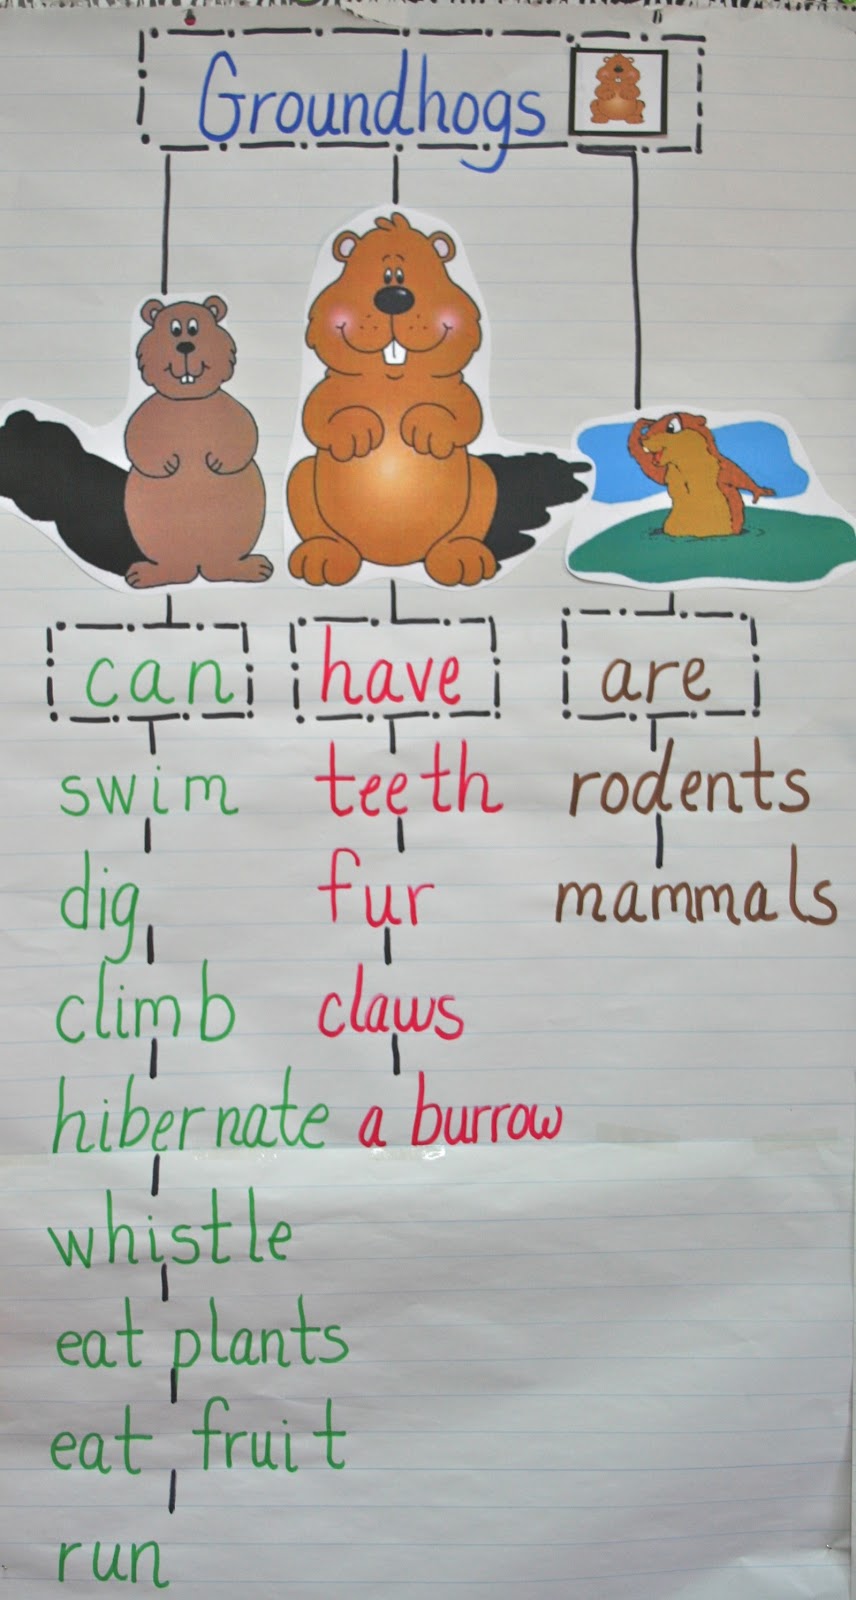 Groundhogs
can
have
are
swim
teeth
rodents
dig
fur
mammals
climb
claws
hibernate
a burrow
whistle
eat plants
eat fruit
run